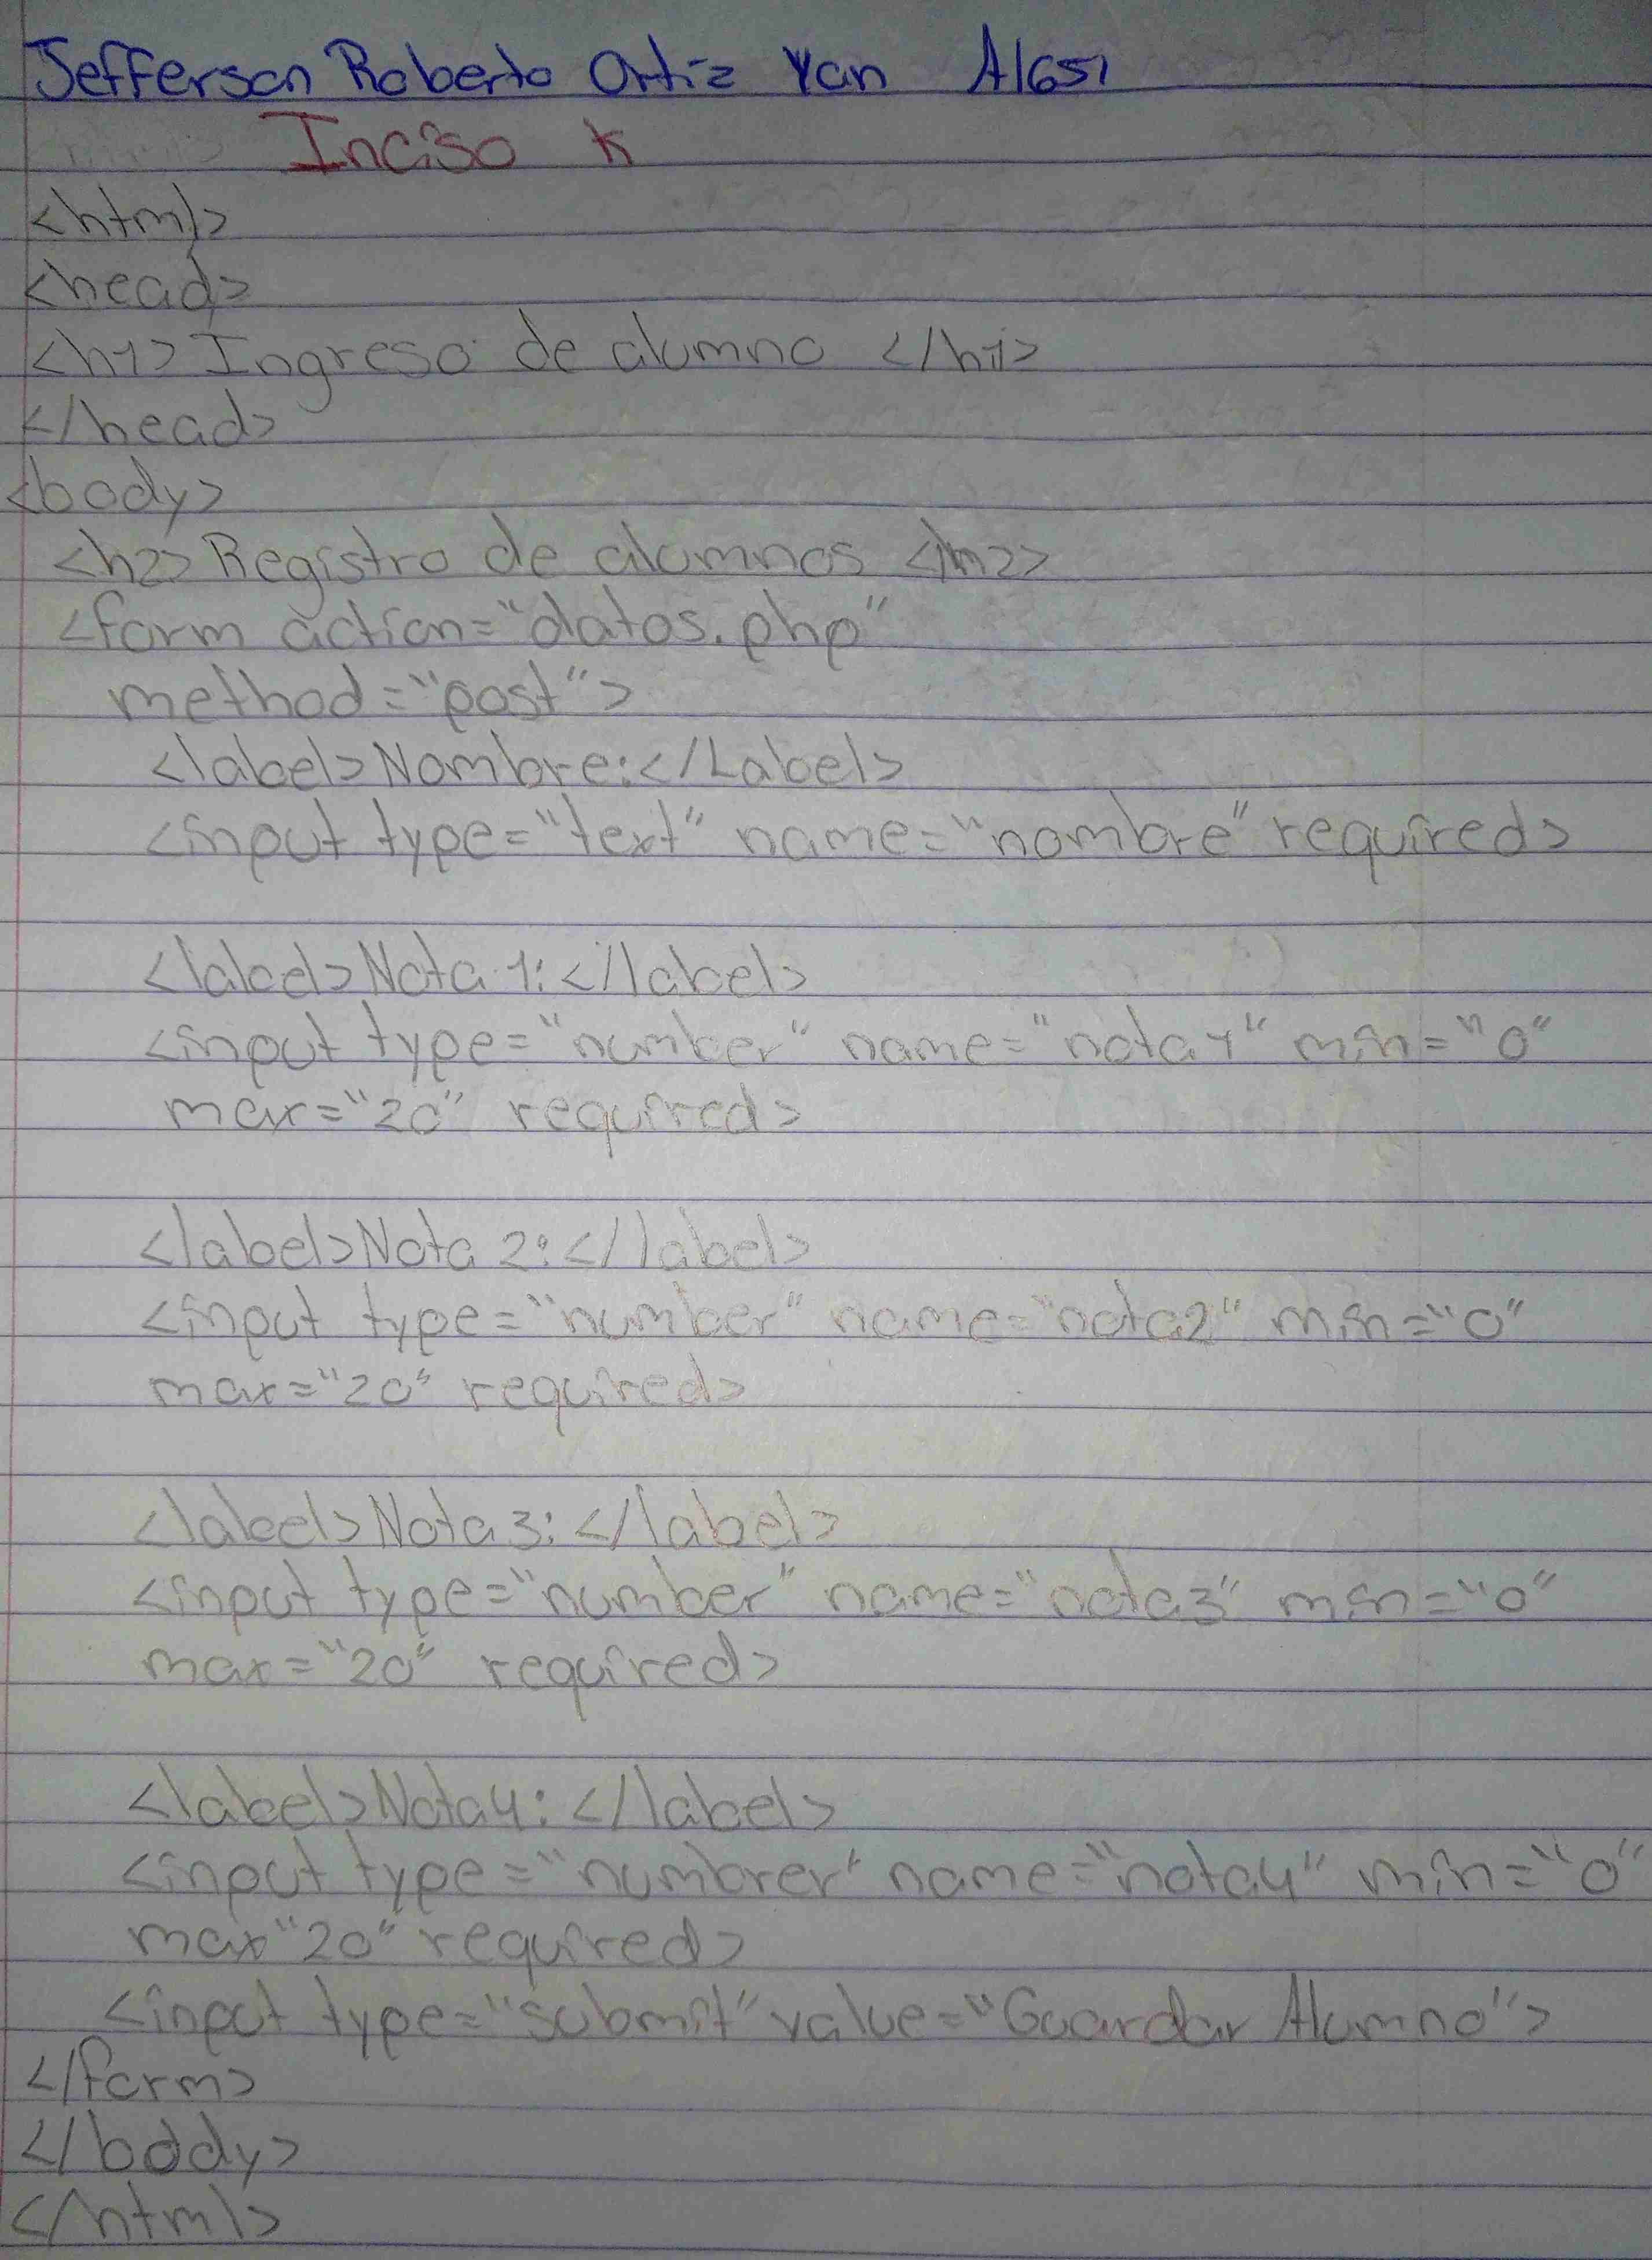 Jefferson Roberto Ortiz Yan A1651
Inciso k
<html>
<head>
<h1> Ingreso de alumno </h1>
</head>
<body>
<h2> Registro de alumnos </h2>
<form action="datos.php"
method="post">
<label>Nombre:</Label>
<input type="text" name="nombre" required>
<label>Nota 1:</label>
<input type="number" name="nota1" min="0"
max="20" required>
<label>Nota 2:</label>
<input type="number" name="nota2" min="0"
max="20" required>
<label>Nota 3:</label>
<input type="number" name="nota3" min="0"
max="20" required>
<label>Nota4:</label>
<input type="numbrer" name="nota4" min="0"
max"20" required>
<input type="submit" value="Guardar Alumno">
</form>
</body>
</html>